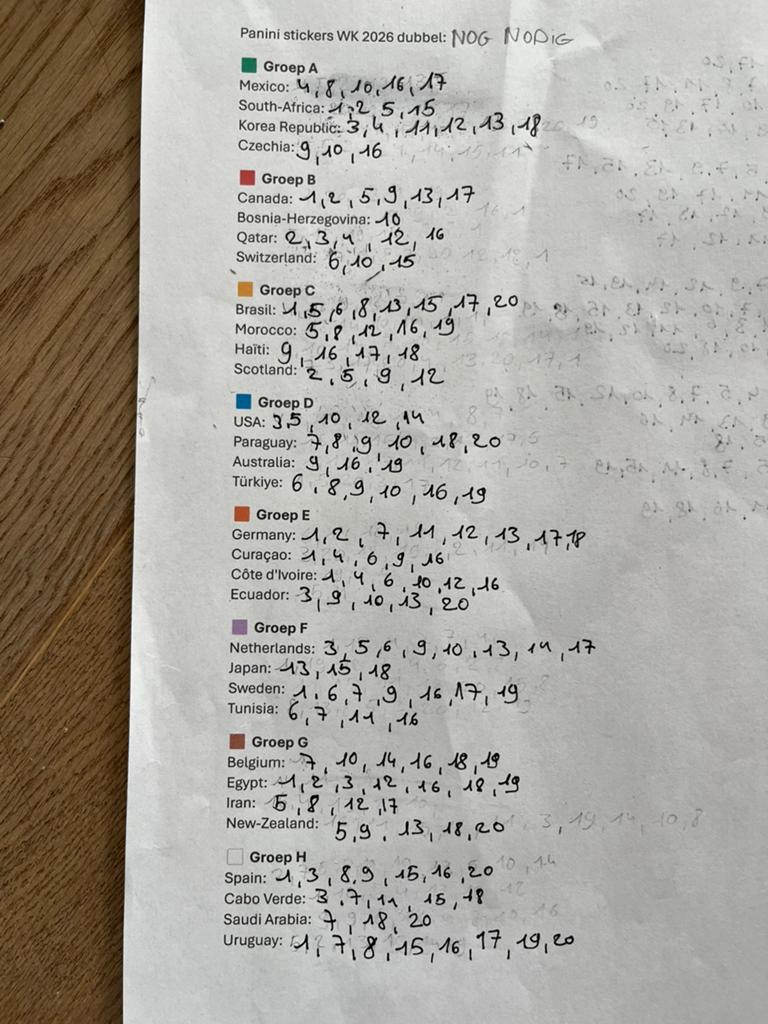 Panini stickers WK 2026 dubbel: NOG NODIG
Groep A
Mexico: 4, 8, 10, 16, 17
South-Africa: 1, 2 5, 15
Korea Republic: 3, 4, 11, 12, 13, 18
Czechia: 9, 10, 16
Groep B
Canada: 1, 2, 5, 9, 13, 17
Bosnia-Herzegovina: 10
Qatar: 2, 3, 4, 12, 16
Switzerland: 6, 10, 15
Groep C
Brasil: 1, 5, 6, 8, 13, 15, 17, 20
Morocco: 5, 8, 12, 16, 19
Haïti: 9, 16, 17, 18
Scotland: 2, 5, 9, 12
Groep D
USA: 3, 5, 10, 12, 14
Paraguay: 7, 8, 9 10, 18, 20
Australia: 9, 16, 19
Türkiye: 6, 8, 9, 10, 16, 19
Groep E
Germany: 1, 2, 7, 11, 12, 13, 17, 18
Curaçao: 1, 4, 6, 9, 16
Côte d'Ivoire: 1, 4, 6, 10, 12, 16
Ecuador: 3, 9, 10, 13, 20
Groep F
Netherlands: 3, 5, 6, 9, 10, 13, 14, 17
Japan: 13, 15, 18
Sweden: 1, 6, 7, 9, 16, 17, 19
Tunisia: 6, 7, 11, 16
Groep G
Belgium: 7, 10, 14, 16, 18, 19
Egypt: 1, 2, 3, 12, 16, 18, 19
Iran: 5, 8, 12, 17
New-Zealand: 5, 9, 13, 18, 20
Groep H
Spain: 1, 3, 8, 9, 15, 16, 20
Cabo Verde: 3, 7, 11, 15, 18
Saudi Arabia: 7, 18, 20
Uruguay: 1, 7, 8, 15, 16, 17, 19, 20